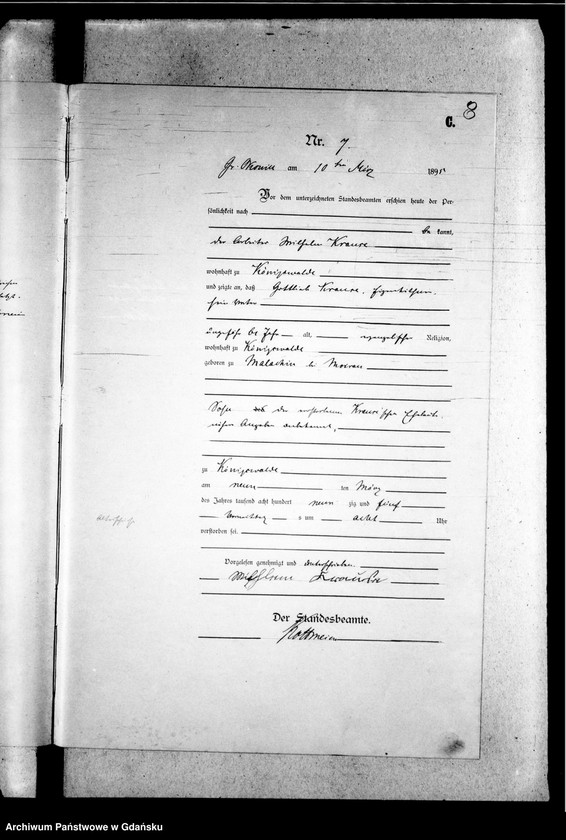 8
C.
Nr. 7.
am 10ten März 189
Vor dem unterzeichneten Standesbeamten erschien heute der Per-
sönlichkeit nach
be kannt,
der Arbeiter Wilhelm Krause
wohnhaft zu Königswalde
und zeigte an, daß Gottlieb Krause,
sein Vater
ungefähr Jahr alt, evangelischer Religion,
wohnhaft zu Königswalde
geboren zu bei
Sohn der verstorbenen Krause'schen Eheleute,
nähere Angaben unbekannt,
zu Königswalde
am neun ten März
des Jahres tausend acht hundert neun zig und fünf
Vormittag s um acht Uhr
verstorben sei.
Vorgelesen genehmigt und unterschrieben
Wilhelm Krause
Der Standesbeamte.
Archiwum Państwowe w Gdańsku